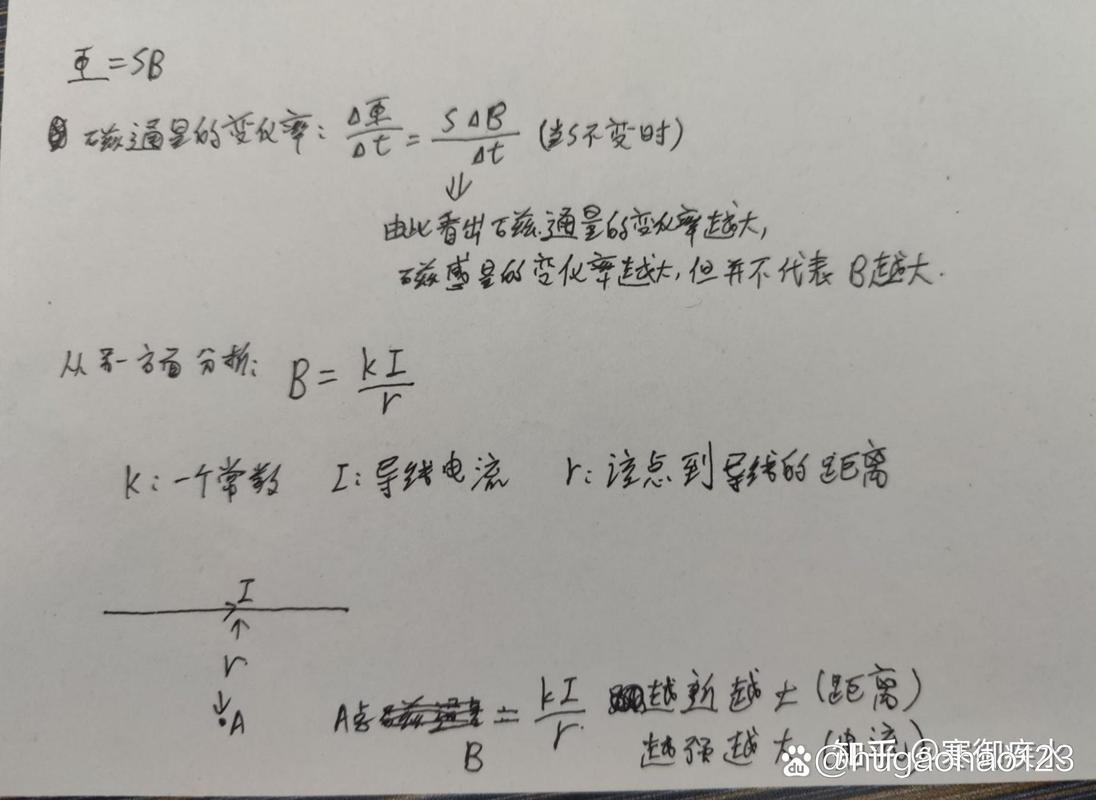 Φ=SB
磁通量的变化率: ΔΦ/Δt = SΔB/Δt (当S不变时)
⇓
由此看出磁通量的变化率越大,
磁感量的变化率越大,但并不代表 B越大.
从另一方面分析: B = kI/r
k:一个常数 I:导线电流 r:该点到导线的距离
I
↑
r
↓
·A
A点 B = kI/r 越近越大(距离)
越强越大(电流)
知乎 @寒御疾水
@hugaohao123